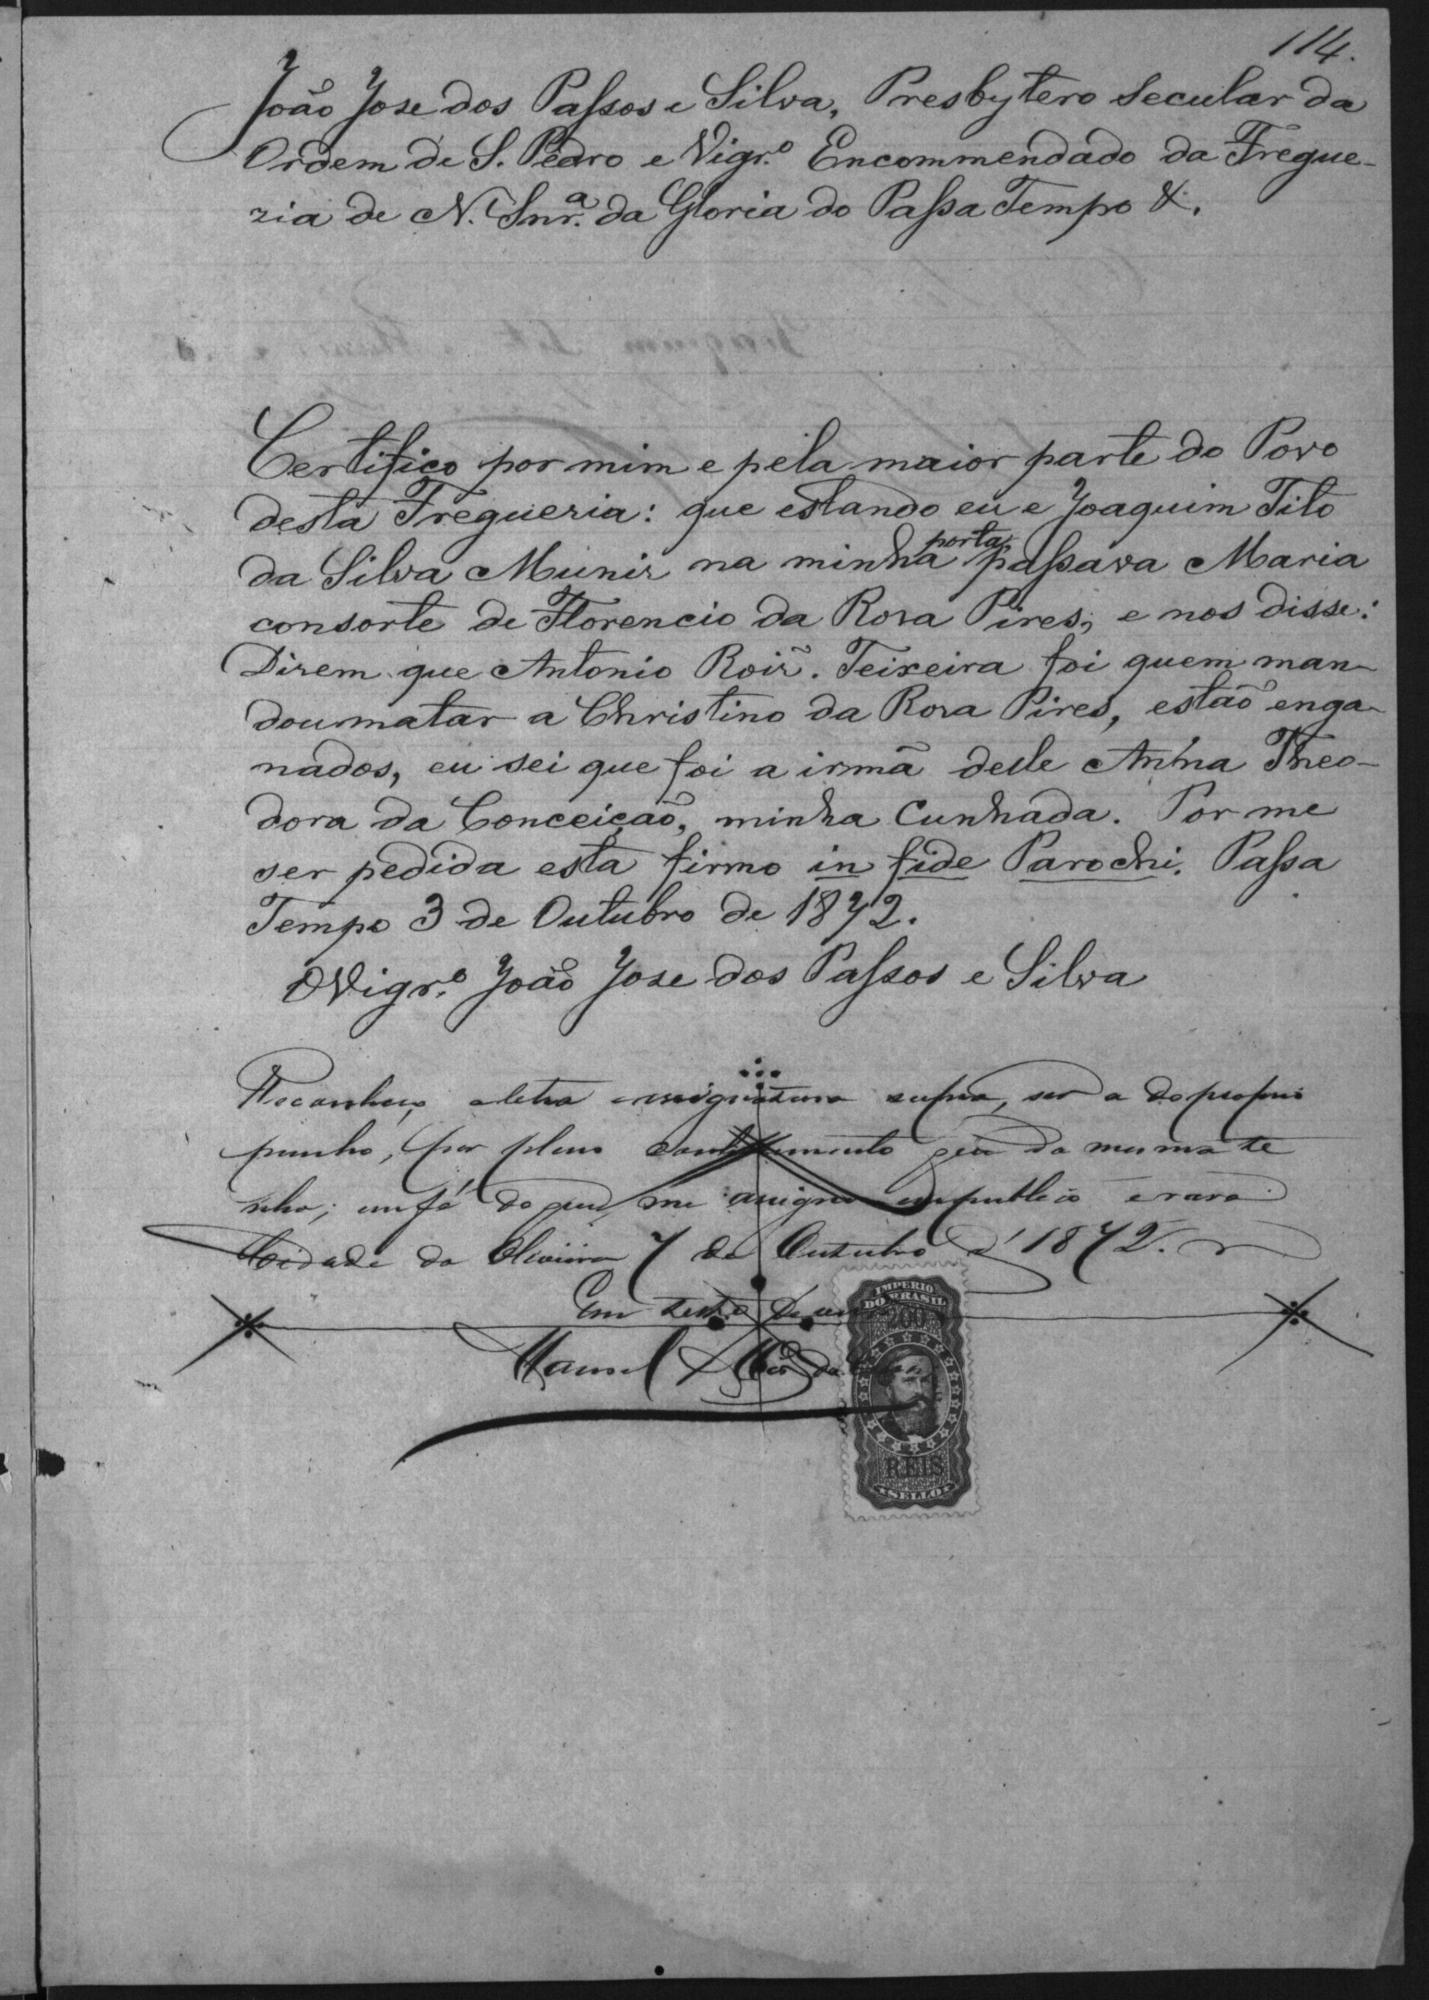 114.
João Jose dos Passos e Silva, Presbytero Secular da
Ordem de S. Pedro e Vigr.º Encommendado da Fregue-
zia de N. Snr.ª da Gloria do Passa Tempo &.
Certifico por mim e pela maior parte do Povo
desta Fregueria: que estando eu e Joaquim Tito
da Silva Munis na minha porta passava Maria
consorte de Florencio da Rosa Pires, e nos disse:
Dizem que Antonio Roiz. Teixeira foi quem man-
dou matar a Christino da Rosa Pires, estão enga-
nados, eu sei que foi a irmã delle Anna Theo-
dora da Conceição, minha Cunhada. Por me
ser pedida esta firmo in fide Parochi. Passa
Tempo 3 de Outubro de 1872.
O Vigr.º João Jose dos Passos e Silva
Reconheço a letra e assignatura supra, ser a do proprio
punho, por pleno conhecimento que da mesma te
nho; em fé do que me assigno em publico e raso
Cidade da Oliveira 7 de Outubro d' 1872.
Em testº de
Manoel da
IMPERIO
DO BRASIL
200
REIS
SELLO